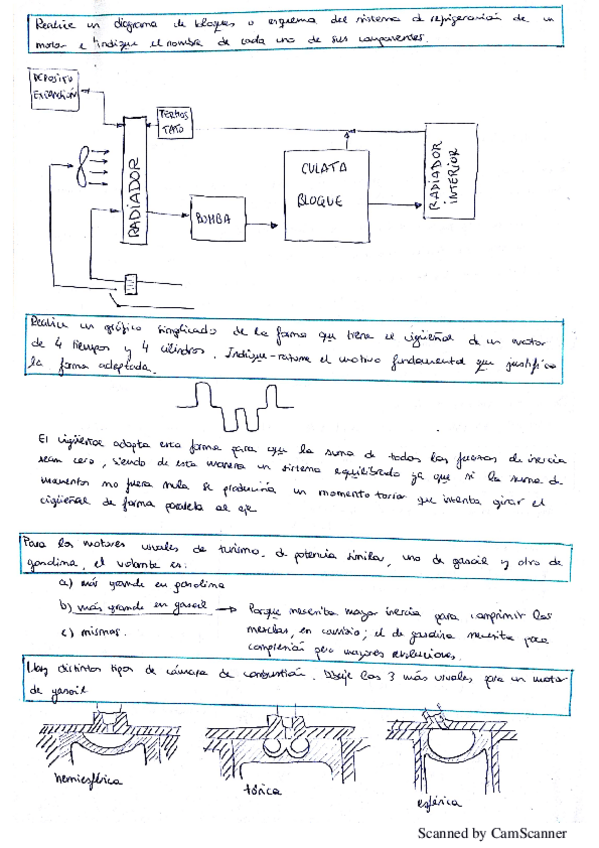 Realice un diagrama de bloques o esquema del sistema de refrigeración de un
motor e indique el nombre de cada uno de sus componentes.
DEPOSITO
EXPANSIÓN
TERMOS
TATO
RADIADOR
BOMBA
CULATA
BLOQUE
RADIADOR
INTERIOR
Realice un gráfico simplificado de la forma que tiene el cigüeñal de un motor
de 4 tiempos y 4 cilindros. Indique-razone el motivo fundamental que justifica
la forma adoptada.
El cigüeñal adopta esta forma para que la suma de todas las fuerzas de inercia
sean cero, siendo de esta manera un sistema equilibrado ya que si la suma de
momentos no fuera nula se produciría un momento torsor que intenta girar el
cigüeñal de forma paralela al eje
Para los motores usuales de turismo, de potencia similar, uno de gasoil y otro de
gasolina, el volante es:
a) más grande en gasolina
b) más grande en gasoil → Porque necesita mayor inercia para comprimir las
mezclas, en cambio; el de gasolina necesita poca
compresión pero mayores revoluciones.
c) mismos.
Hay distintos tipos de cámara de combustión. Dibuje las 3 más usuales para un motor
de gasoil
hemiesférica
tórica
esférica
Scanned by CamScanner